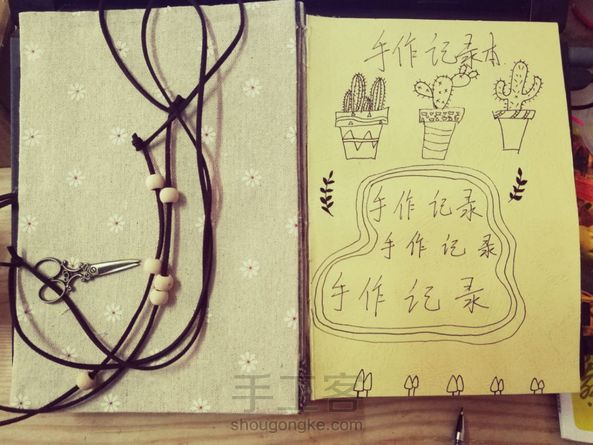 手作记录本
手作记录
手作记录
手作记录
手工客
shougongke.com